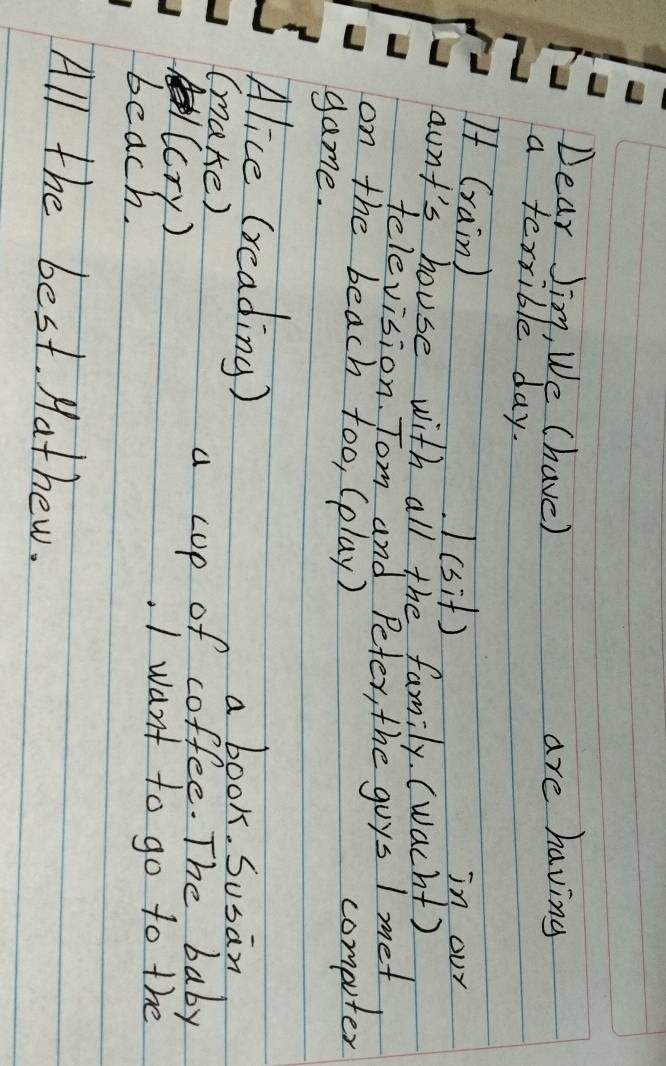 Dear Jim, We (have) are having
a terrible day.
It (rain) . I (sit) in our
aunt's house with all the family. (Wacht)
television. Tom and Peter, the guys I met
on the beach too, (play) computer
game.
Alice (reading) a book. Susan
(make) a cup of coffee. The baby
(cry) . I want to go to the
beach.
All the best. Mathew.